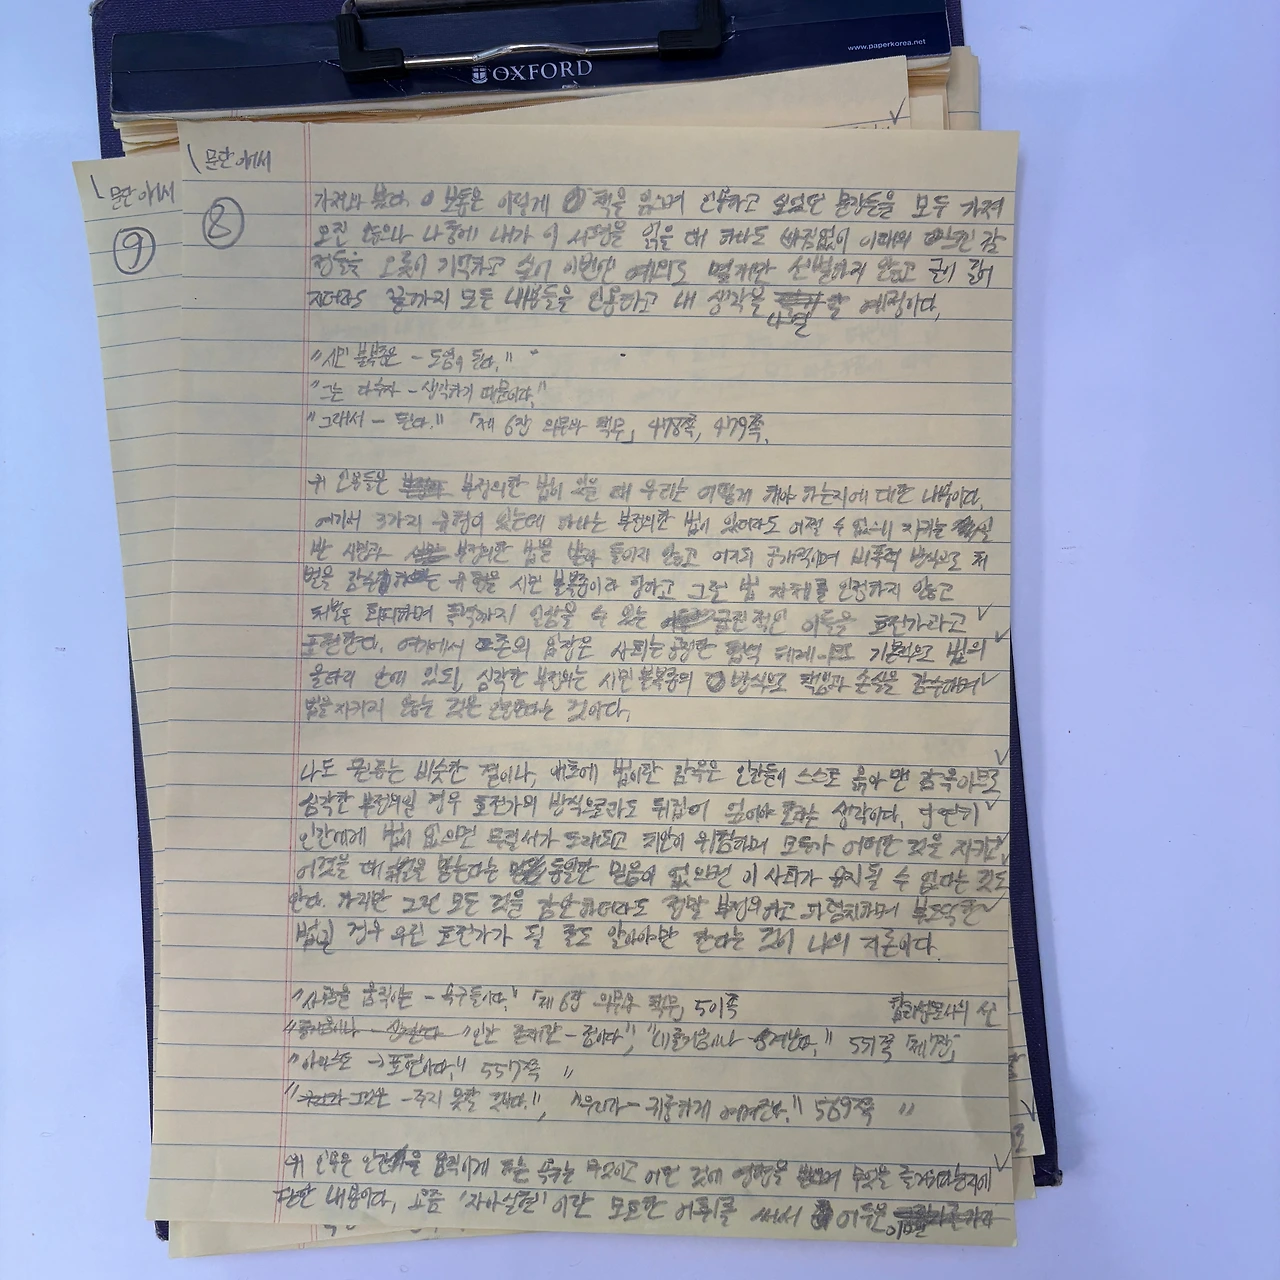 www.paperkorea.net
OXFORD
\ 문단에서
⑨
\ 문단에서
⑧
가져와 봤다. 보통은 이렇게 책을 읽으며 인용하고 싶었던 문장들을 모두 가져
오진 않으나 나중에 내가 이 서평을 읽을 때 하나도 빠짐없이 이때의 느낀 감
정들을 오롯이 기억하고 싶어 이번만 예외로 몇개만 선별하지 않고 글이 길어
지더라도 끝까지 모든 내용들을 인용하고 내 생각을 나열할 예정이다.
"시민 불복종은 - 도움이 된다."
"그는 다수자 - 생각하기 때문이다."
"그래서 - 된다." 「제 6장 의무와 책무」 478쪽, 479쪽.
위 인용들은 부정의한 법이 있을 때 우리는 어떻게 해야 하는지에 대한 내용이다.
여기서 3가지 유형이 있는데 하나는 부정의한 법이 있더라도 어쩔 수 없으니 지키는 일
반 시민과 부정의한 법을 받아 들이지 않고 어디까지 공개적이며 비폭력 방식으로 처
벌을 감수하는 유형을 시민 불복종이라 칭하고 그런 법 자체를 인정하지 않고
처벌은 회피하며 폭력까지 일삼을 수 있는 급진적인 이들을 효전가라고
표현한다. 여기에서 존의 입장은 사회는 공정한 협력 체계이므로 기본적으로 법의
울타리 안에 있되, 심각한 부정의는 시민 불복종의 방식으로 책임과 손실을 감수하며
법을 지키지 않는 것은 인정한다는 것이다.
나도 문류는 비슷한 결이나, 애초에 법이란 감옥은 인간들이 스스로 옭아 맨 감옥이므로
심각한 부정의일 경우 효전가의 방식으로라도 뒤집어 엎어야 한다는 생각이다. 당연히
인간에게 법이 없으면 무질서가 도래되고 치안이 위험하며 모두가 어떠한 것을 지키고
어겼을 때 벌을 받는다는 동일한 믿음이 없으면 이 사회가 유지될 수 없다는 것도
안다. 하지만 그런 모든 것을 감안하더라도 정말 부정의하고 파렴치하며 부도덕한
법일 경우 우린 효전가가 될 줄도 알아야만 한다는 것이 나의 지론이다.
"사람을 움직이는 - 욕구들이다." 「제 6장 의무와 책무」 501쪽
"인간 존재란 - 점이다.", "즐거움이나 - 생겨난다." 551쪽 「제7장」
합리성으로서의 선
"아리스토 → 표현이다." 557쪽 〃
"그것은 - 주지 못할 것이다.", "우리가 - 귀중하게 여겨진다." 569쪽 〃
위 인용은 인간을 움직이게 하는 욕구는 무엇이고 어떤 것에 영향을 받으며 무엇을 즐거워하는지에
관한 내용이다. 요즘 '자아실현'이란 모호한 어휘를 써서 이들은